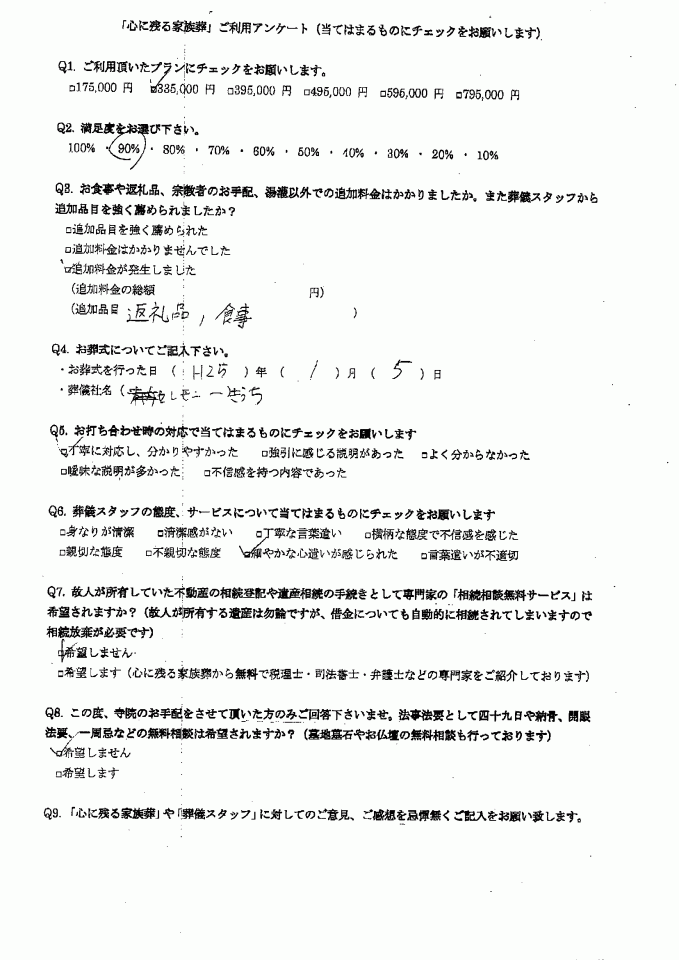 「心に残る家族葬」ご利用アンケート（当てはまるものにチェックをお願いします）
Q1. ご利用頂いたプランにチェックをお願いします。
□175,000 円 ☑335,000 円 □395,000 円 □495,000 円 □595,000 円 □795,000 円
Q2. 満足度をお選び下さい。
100% ・ 90% ・ 80% ・ 70% ・ 60% ・ 50% ・ 40% ・ 30% ・ 20% ・ 10%
Q3. お食事や返礼品、宗教者のお手配、湯灌以外での追加料金はかかりましたか。また葬儀スタッフから
追加品目を強く薦められましたか？
□追加品目を強く薦められた
□追加料金はかかりませんでした
☑追加料金が発生しました
（追加料金の総額 円）
（追加品目 返礼品, 食事 ）
Q4. お葬式についてご記入下さい。
・お葬式を行った日（ H25 ）年（ 1 ）月（ 5 ）日
・葬儀社名（ セレモニー
Q5. お打ち合わせ時の対応で当てはまるものにチェックをお願いします
☑丁寧に対応し、分かりやすかった □強引に感じる説明があった □よく分からなかった
□曖昧な説明が多かった □不信感を持つ内容であった
Q6. 葬儀スタッフの態度、サービスについて当てはまるものにチェックをお願いします
□身なりが清潔 □清潔感がない □丁寧な言葉遣い □横柄な態度で不信感を感じた
□親切な態度 □不親切な態度 ☑細やかな心遣いが感じられた □言葉遣いが不適切
Q7. 故人が所有していた不動産の相続登記や遺産相続の手続きとして専門家の「相続相談無料サービス」は
希望されますか？（故人が所有する遺産は勿論ですが、借金についても自動的に相続されてしまいますので
相続放棄が必要です）
☑希望しません
□希望します（心に残る家族葬から無料で税理士・司法書士・弁護士などの専門家をご紹介しております）
Q8. この度、寺院のお手配をさせて頂いた方のみご回答下さいませ。法事法要として四十九日や納骨、開眼
法要、一周忌などの無料相談は希望されますか？（墓地墓石やお仏壇の無料相談も行っております）
☑希望しません
□希望します
Q9. 「心に残る家族葬」や「葬儀スタッフ」に対してのご意見、ご感想を忌憚無くご記入をお願い致します。